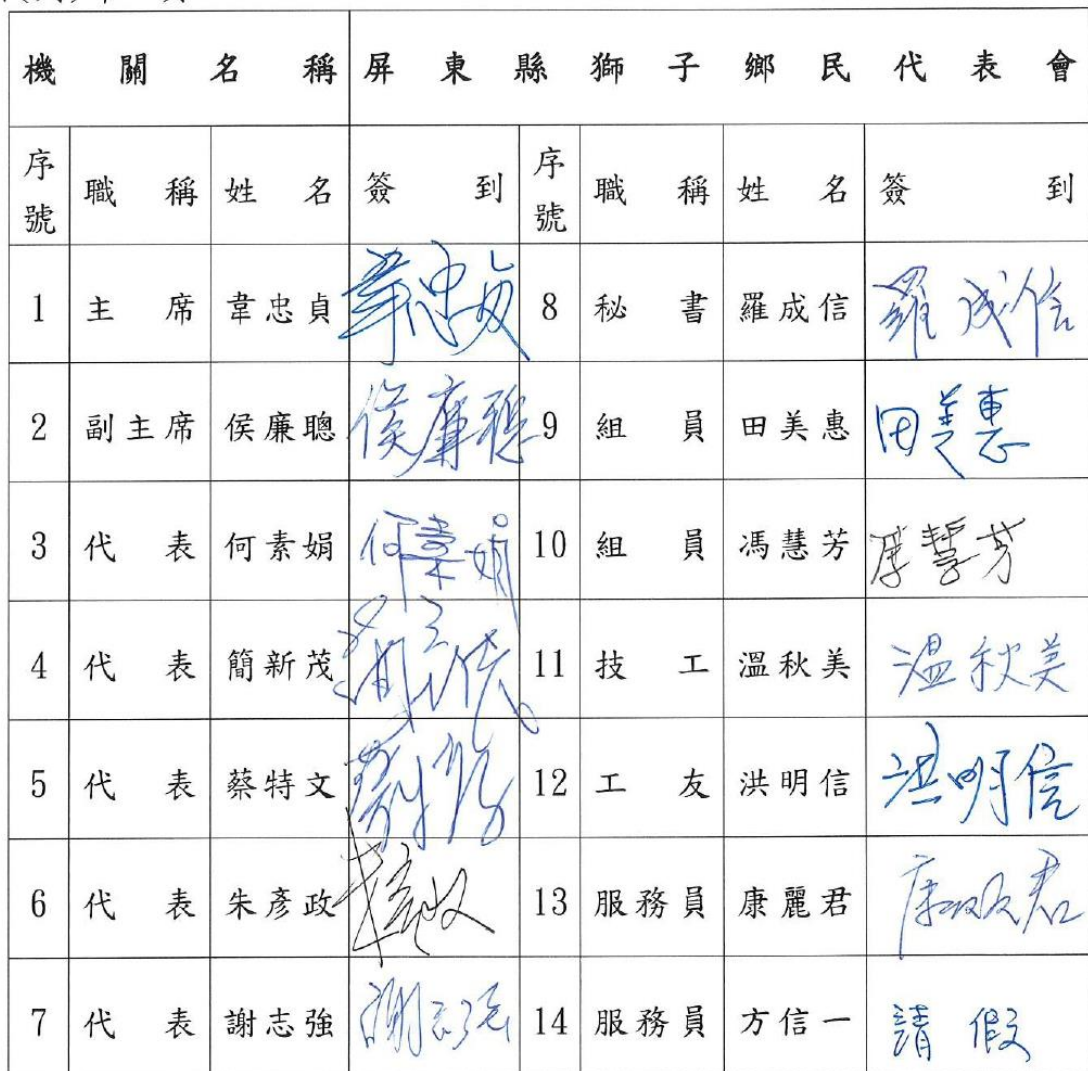 機關名稱 屏東縣獅子鄉民代表會
序號 職稱 姓名 簽到 序號 職稱 姓名 簽到
1 主席 韋忠貞 韋忠貞 8 秘書 羅成信 羅成信
2 副主席 侯廉聰 侯廉聰 9 組員 田美惠 田美惠
3 代表 何素娟 何素娟 10 組員 馮慧芳
4 代表 簡新茂 11 技工 溫秋美 溫秋美
5 代表 蔡特文 12 工友 洪明信 洪明信
6 代表 朱彥政 13 服務員 康麗君
7 代表 謝志強 謝志强 14 服務員 方信一 請假